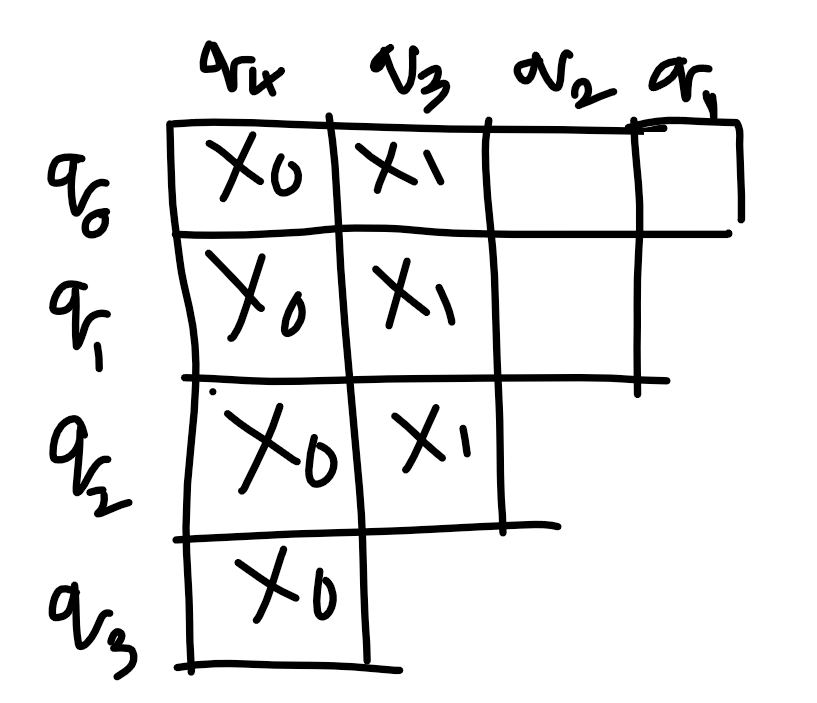 q₄ q₃ q₂ q₁
q₀ X₀ X₁
q₁ X₀ X₁
q₂ X₀ X₁
q₃ X₀